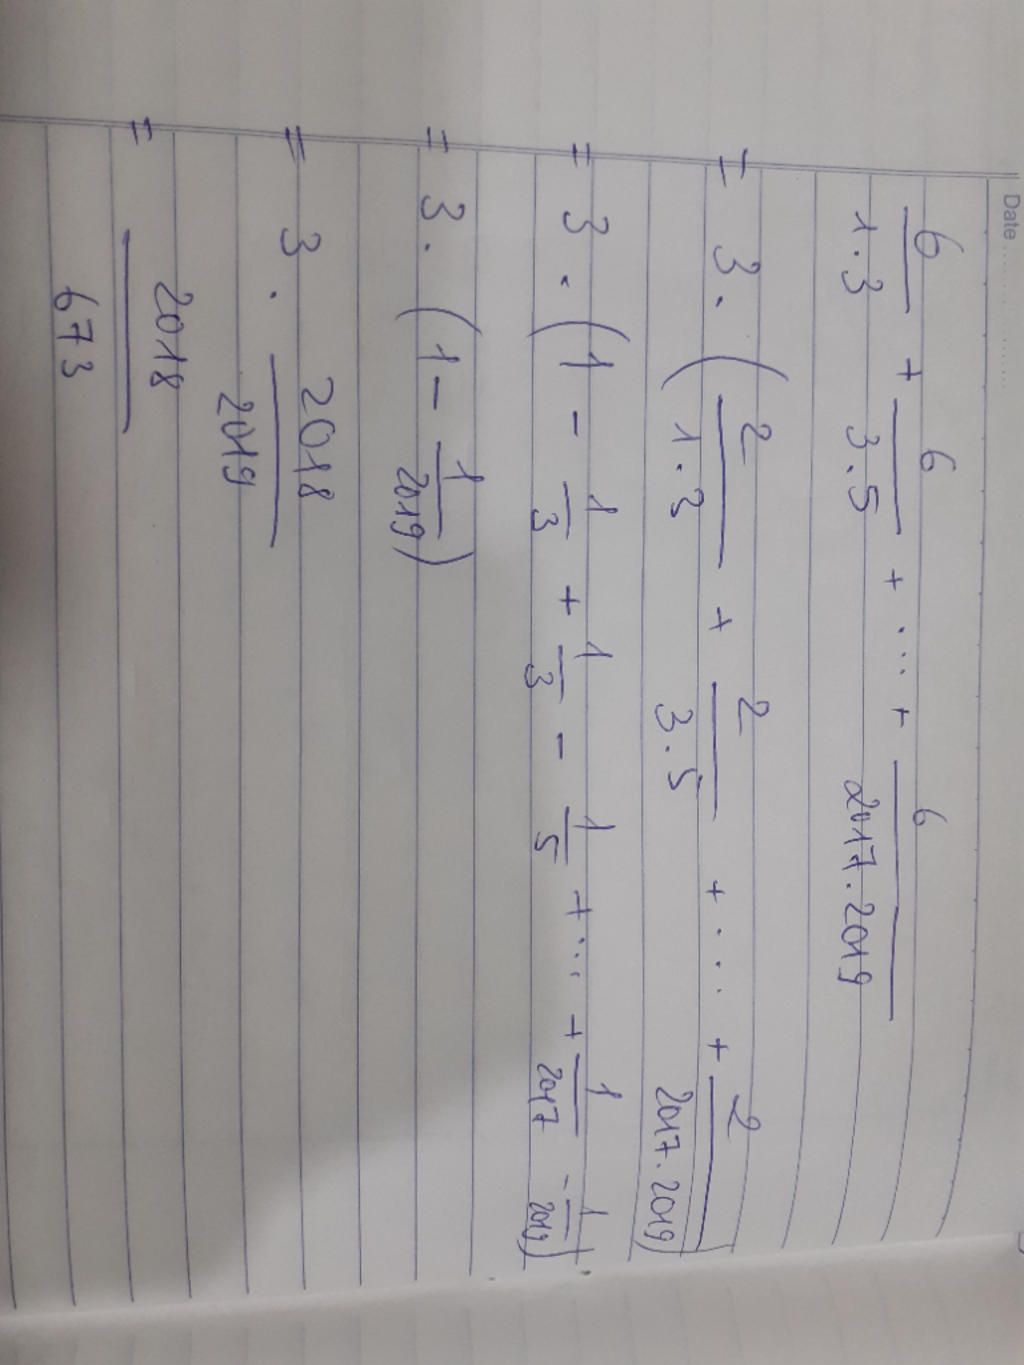 Date
6/(1.3) + 6/(3.5) + ... + 6/(2017.2019)
= 3. (2/(1.3) + 2/(3.5) + ... + 2/(2017.2019))
= 3 . (1 - 1/3 + 1/3 - 1/5 + ... + 1/2017 - 1/2019)
= 3. (1 - 1/2019)
= 3 . 2018/2019
= 2018/673